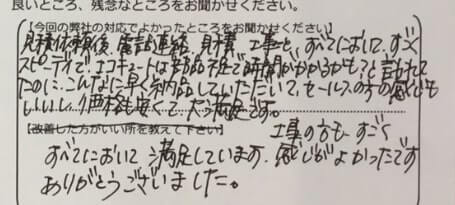 良いところ、残念なところをお聞かせください。
【今回の弊社の対応でよかったところをお聞かせください】
見積依頼後、電話連絡、見積書、工事と、すべてにおいて、すごく
スピーディで、エコキュートは部品不足で時間がかかるかも?と言われて
たのに、こんなに早く納品していただいて、セールスの方の感じも
いいし、価格も安くて、大満足です。
【改善した方がいい所を教えて下さい】
工事の方も、すごく
すべてにおいて満足しています。感じがよかったです
ありがとうございました。